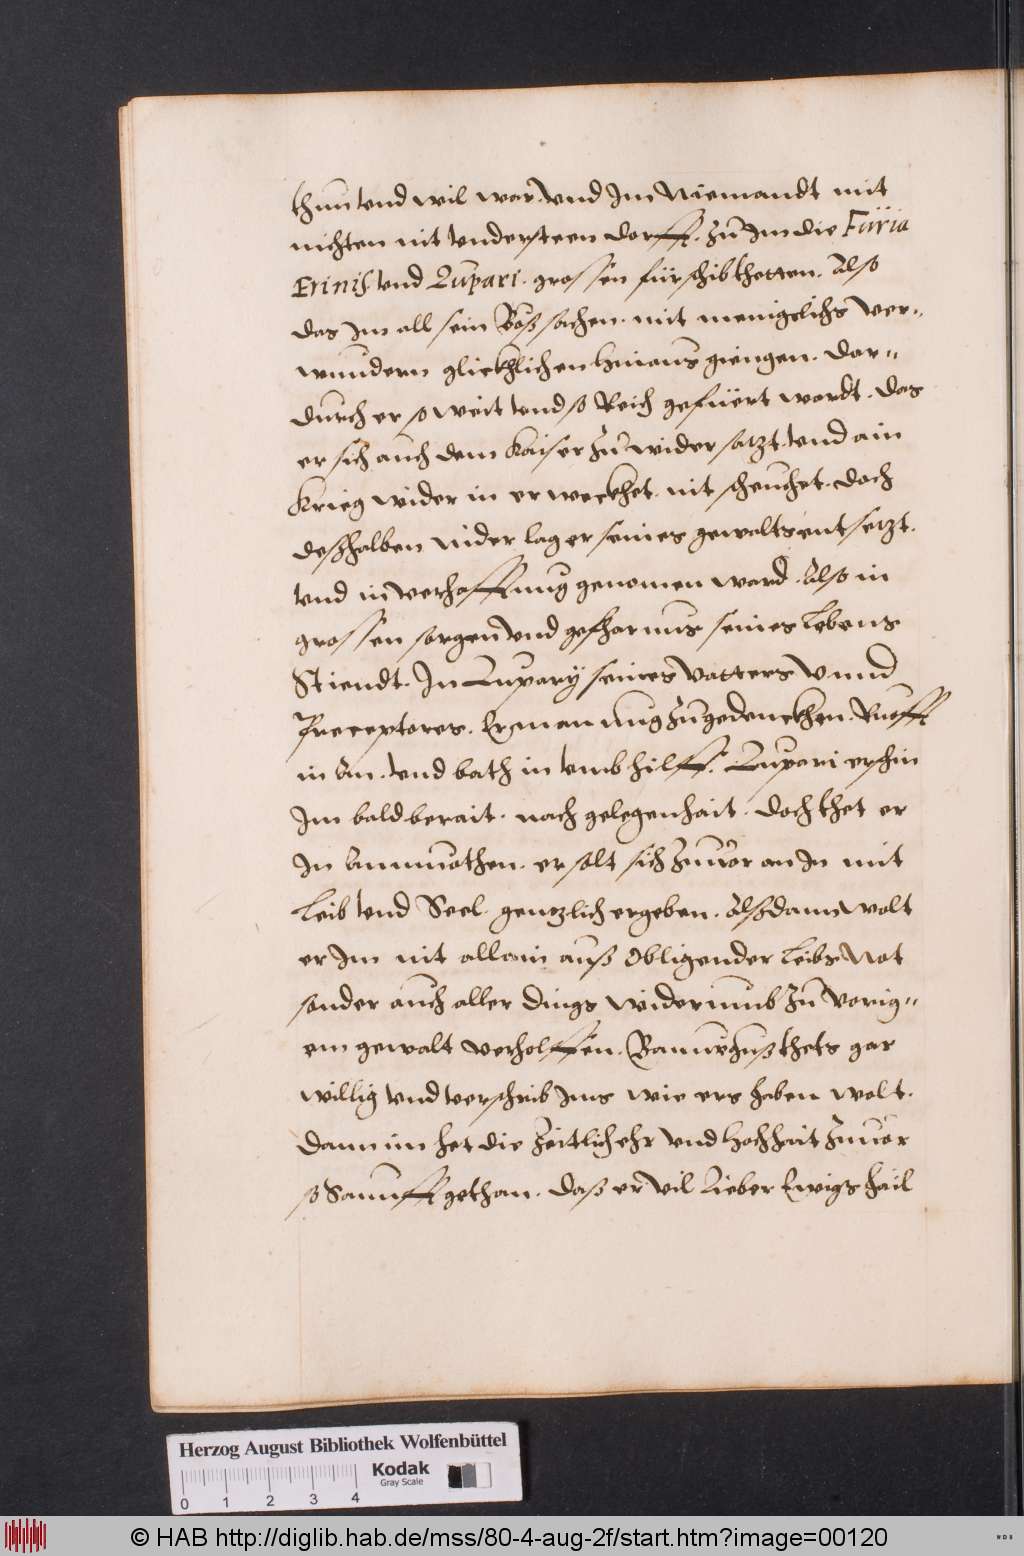 thun vnd wil war. vnd Im Niemandt mit
nichten nit vndersteen dorfft. Zu Im die Füria
Erinis vnd Lupari. grossen fürschib thetten. Also
das Im all sein Boß sachen. mit menigelichs ver„
wundern glickhlichen hinaus giengen. Dar„
durch er so weit vnd so Reich gefüert wardt. Das
er sich auch dem Kaiser Zu wider satzt. vnd ain
Krieg wider in erweckhet. nit scheuchet. Doch
deßhalben niderlag er seines gewalts entsetzt.
vnd in verhafftung genomen ward. Also in
grossen sorgen vnd gefharnus seines Lebens
Stiendt. In Lupary seines Vatters Vnnd
Preceptores. Ermanung Zugedenckhen. Rüefft
in An. vnd bath in vmb hilff. Lupari erschin
Im bald berait. nach gelegenhait. Doch thet er
In Anmuethen. er solt sich Zuuor an In mit
Leib vnd Seel. gentzlich ergeben. Alßdann wolt
er Im nit allain auß Obligender Leibs Not
sonder auch aller dings widerumb Zu Vorig„
em gewalt verhelffen. thets gar
willig vnd verschrib Ims wie ers haben wolt.
Dann im het die Zeitlich ehr vnd Hochhait Zuuor
so Sannfft gethan. Daß er vil Lieber Ewigs hail
Herzog August Bibliothek Wolfenbüttel
Kodak
Gray Scale
0 1 2 3 4
© HAB http://diglib.hab.de/mss/80-4-aug-2f/start.htm?image=00120